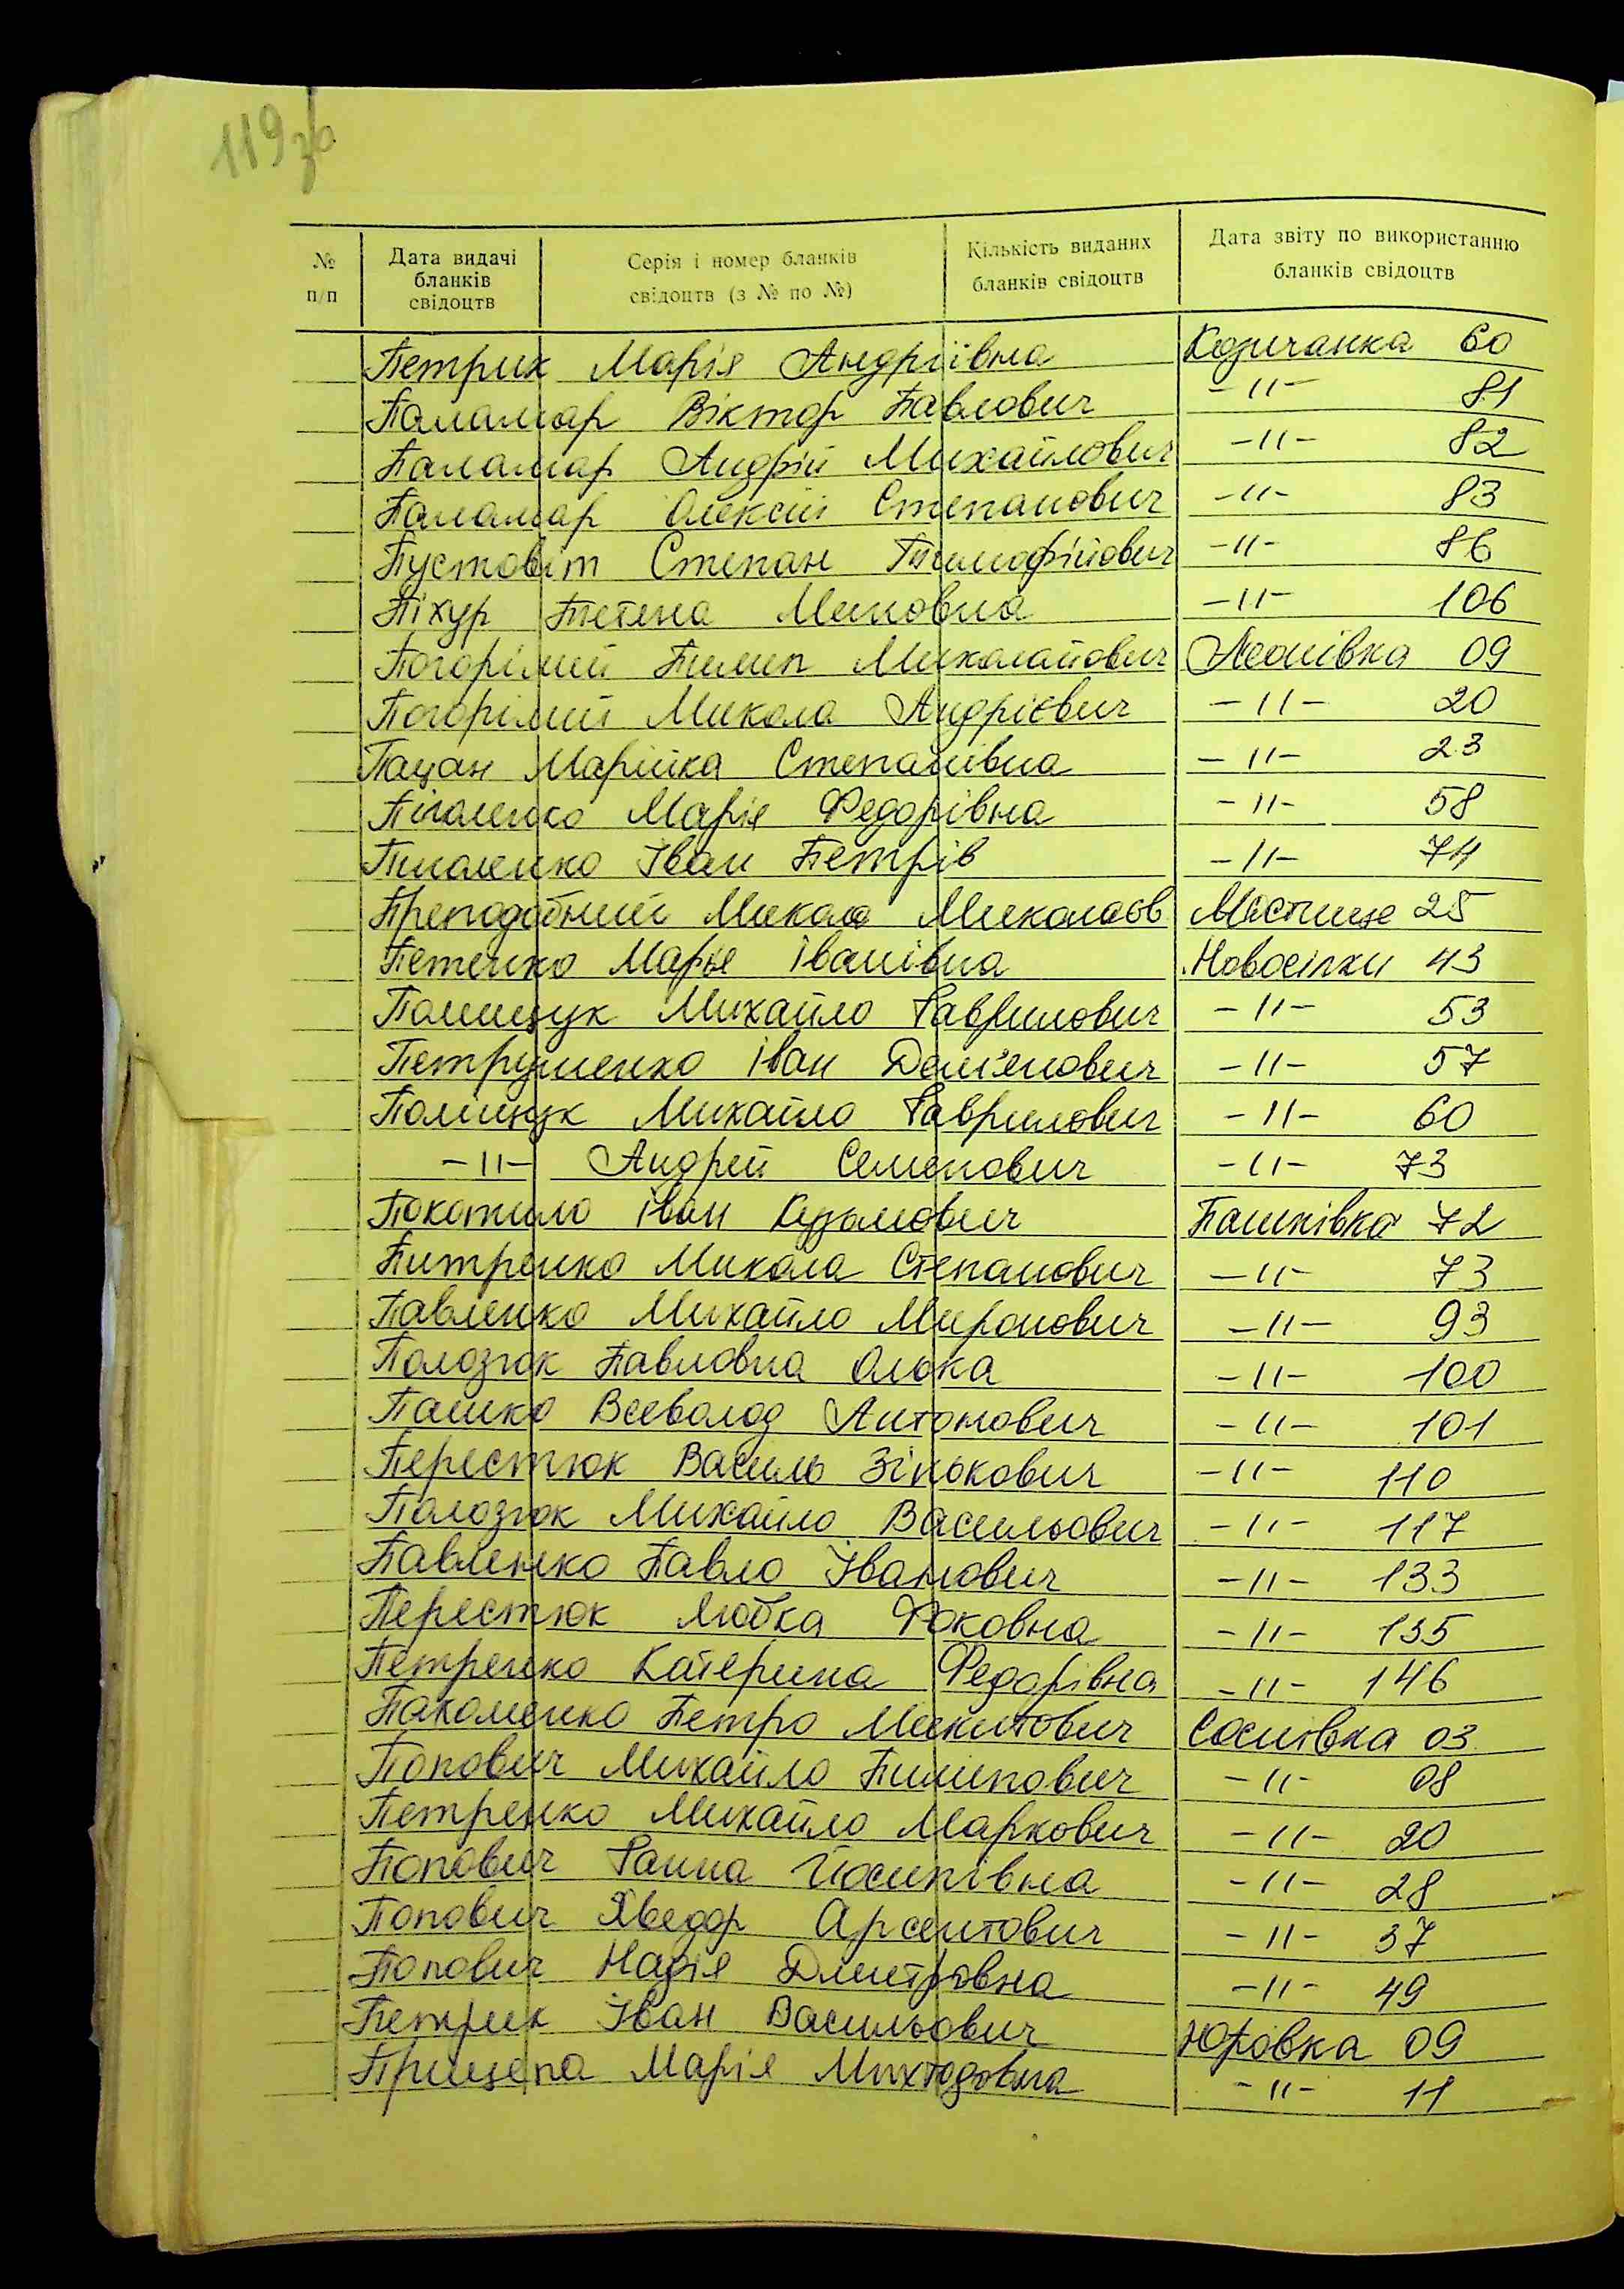 119зв
№ п/п | Дата видачі бланків свідоцтв | Серія і номер бланків свідоцтв (з № по №) | Кількість виданих бланків свідоцтв | Дата звіту по використанню бланків свідоцтв
Петрик Марія Андріївна Кодичанка 60
Паламар Віктор Павлович -"- 81
Паламар Андрій Михайлович -"- 82
Паламар Олексій Степанович -"- 83
Пустовіт Степан Тимофійович -"- 86
Піхур Тетена Миновна -"- 106
Погорілий Пилип Миколайович Леонівка 09
Погорілий Микола Андрієвич -"- 20
Пацан Марійка Степанівна -"- 23
Марія Федорівна -"- 58
Іван Петрів -"- 74
Преподобний Микола Миколаєв Мястище 25
Петенко Марія Іванівна Новосілки 43
Полищук Михайло Гаврилович -"- 53
Петрушенко Іван Дем'енович -"- 57
Поліщук Михайло Гаврилович -"- 60
-"- Андрей Семенович -"- 73
Покотило Іван Кузьмович Пашківка 72
Питренко Микола Степанович -"- 73
Павленко Михайло Миронович -"- 93
Полозюк Павловна Олька -"- 100
Пашко Всеволод Антонович -"- 101
Перестюк Василь Зінькович -"- 110
Полозюк Михайло Васильович -"- 117
Павленко Павло Іванович -"- 133
Перестюк Любка Фоковна -"- 135
Петренко Катерина Федорівна -"- 146
Пахоменко Петро Микитович Соснівка 03
Попович Михайло Пилипович -"- 08
Петренко Михайло Маркович -"- 20
Попович Ганна Йосипівна -"- 28
Попович Хведор Арсентович -"- 37
Попович Надія Дмитрівна -"- 49
Петрик Іван Васильович Юрівка 09
Прищепа Марія Михтодовна -"- 11